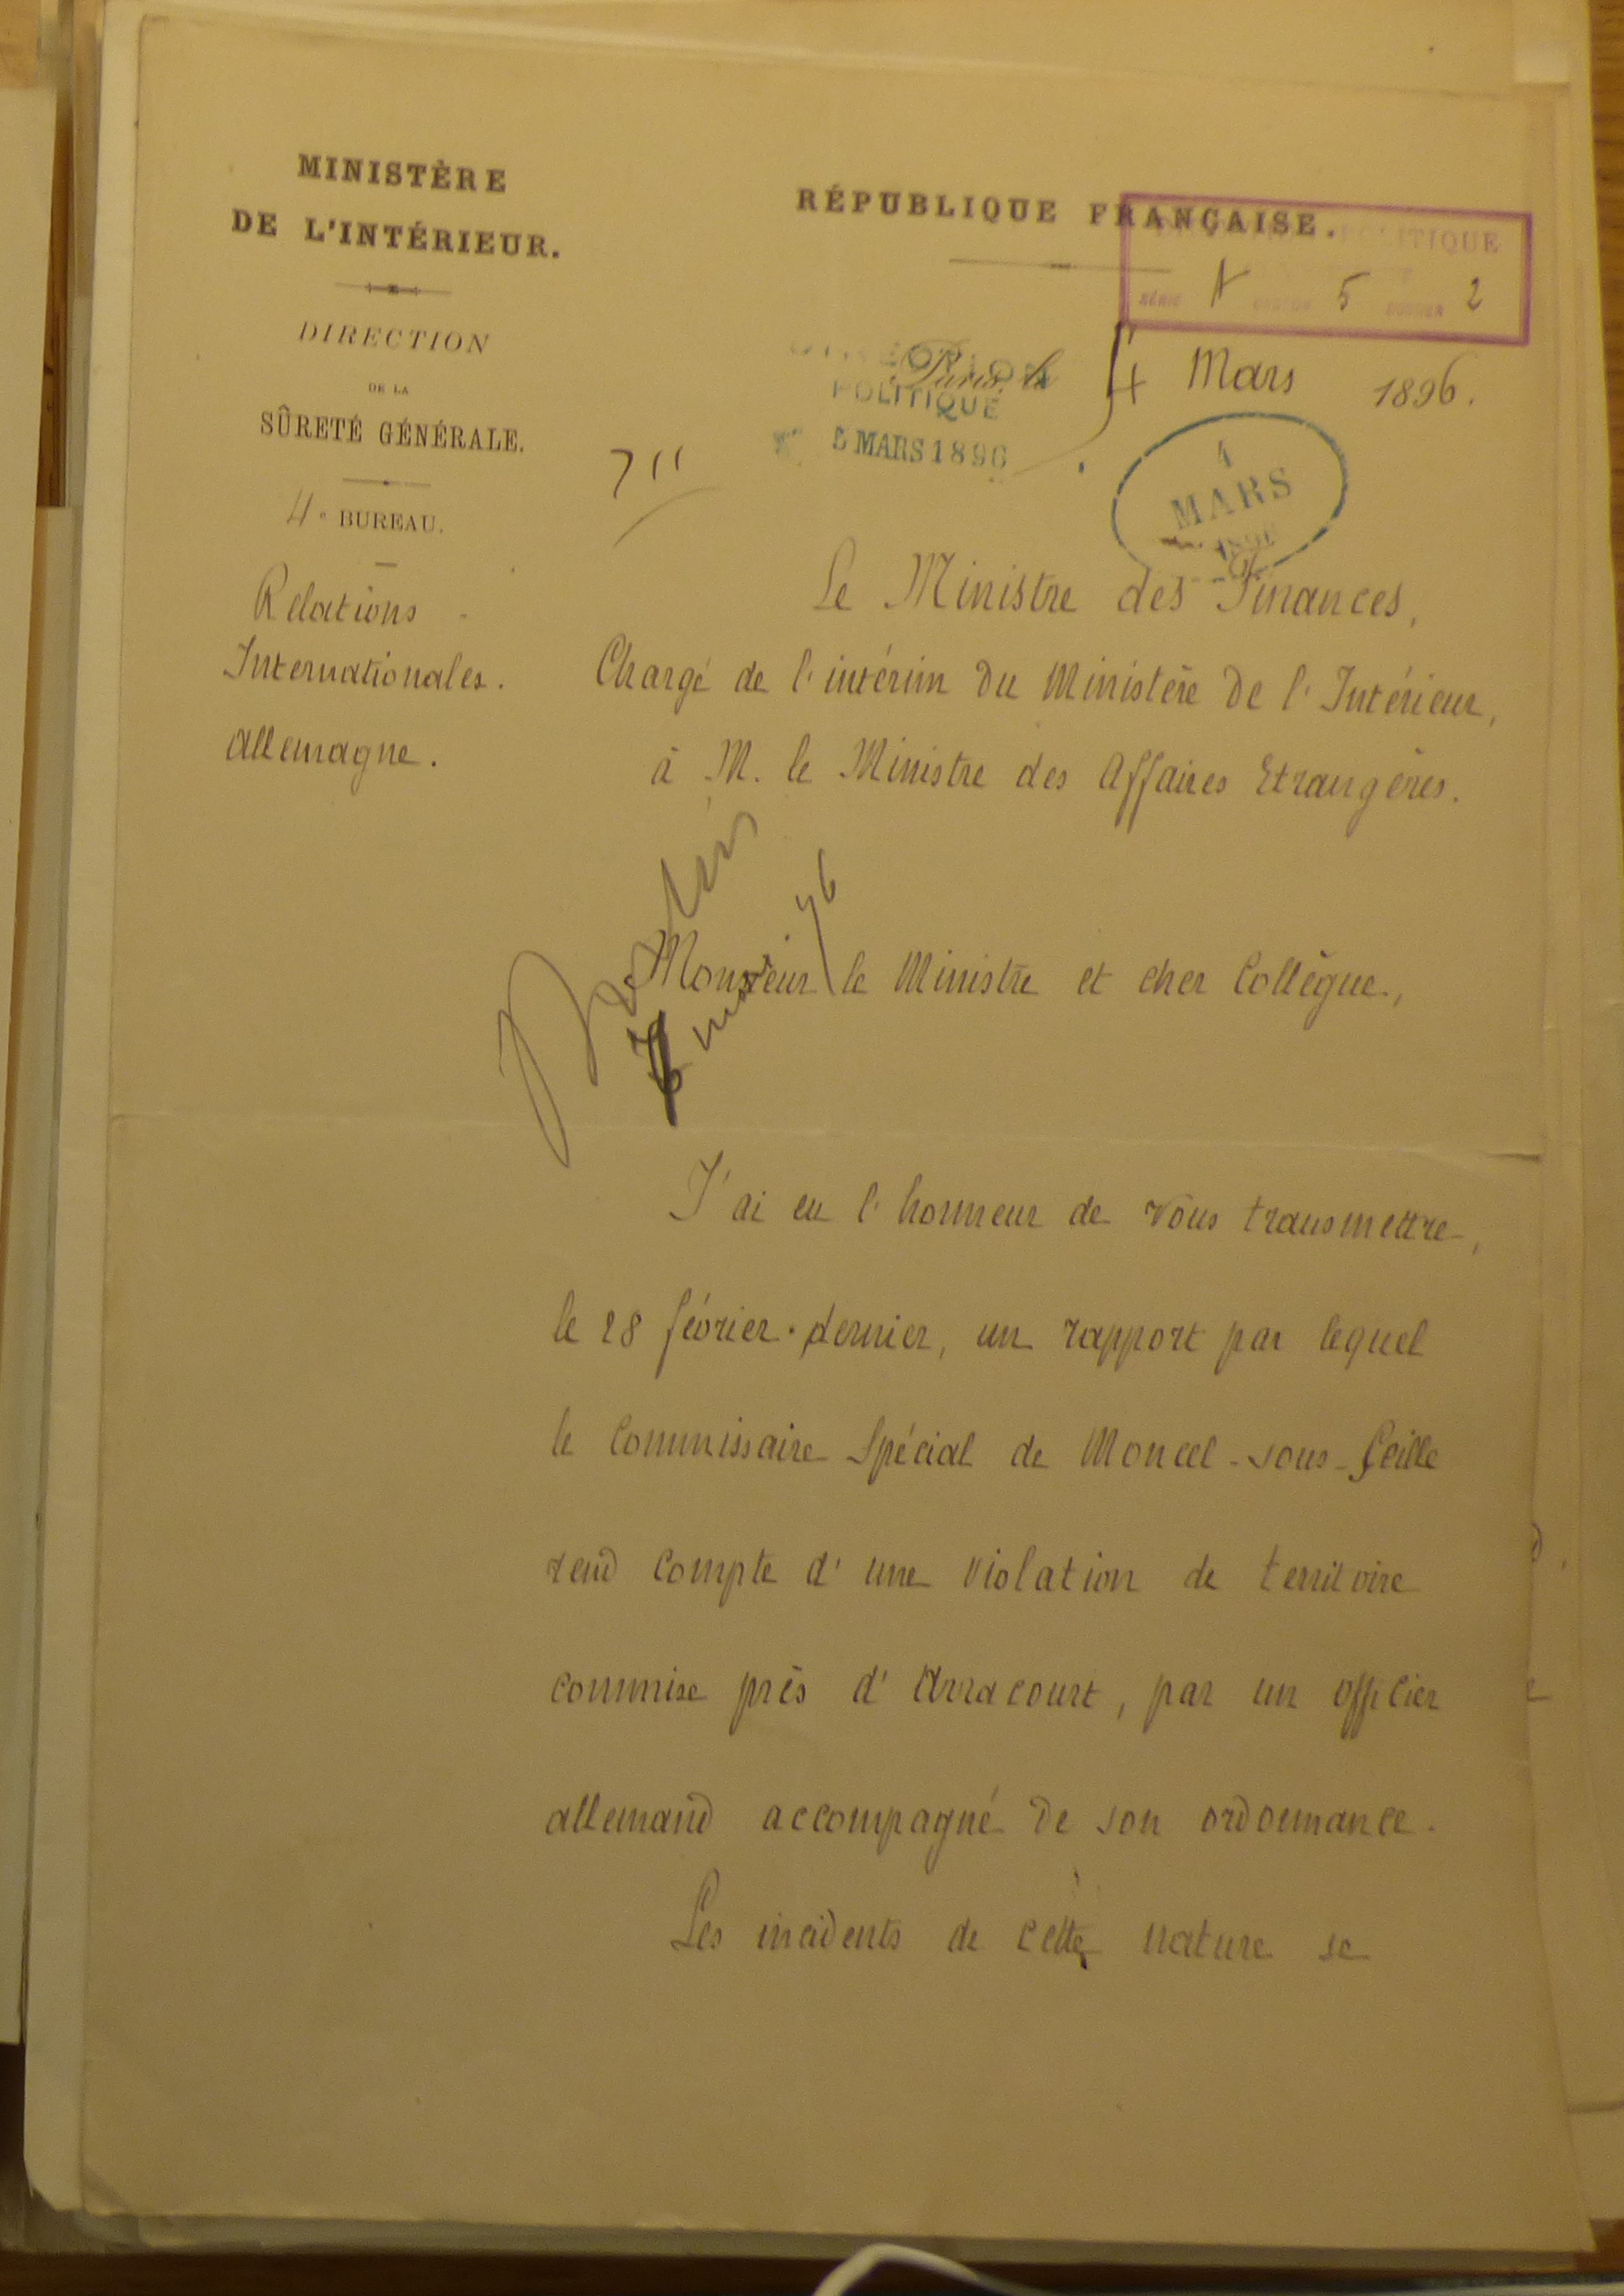 MINISTÈRE
DE L'INTÉRIEUR.
DIRECTION
DE LA
SÛRETÉ GÉNÉRALE.
4e BUREAU.
Relations
Internationales.
Allemagne.
RÉPUBLIQUE FRANÇAISE.
POLITIQUE
SÉRIE A 5 DOSSIER 2
Paris, le 4 Mars 1896.
DIRECTION
POLITIQUE
5 MARS 1896
711
4
MARS
Le Ministre des Finances,
Chargé de l'intérim du Ministère de l'Intérieur,
à M. le Ministre des Affaires Etrangères.
mars 96
Monsieur le Ministre et cher Collègue,
J'ai eu l'honneur de vous transmettre,
le 28 février dernier, un rapport par lequel
le Commissaire Spécial de Moncel-sous-Seille
rend compte d'une violation de territoire
commise près d'Arracourt, par un officier
allemand accompagné de son ordonnance.
Les incidents de cette nature se